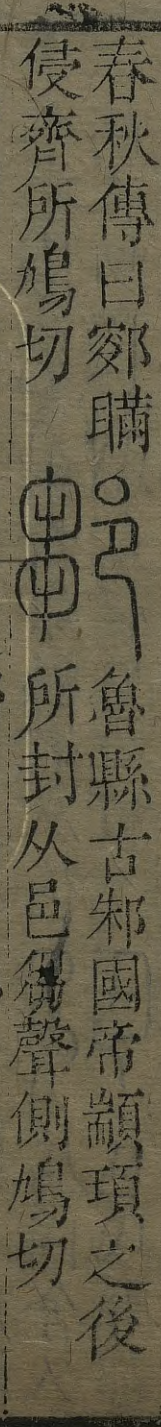 春秋傳曰鄋瞞
侵齊所鳩切
鄒
魯縣古邾國帝顓頊之後
所封从邑芻聲側鳩切